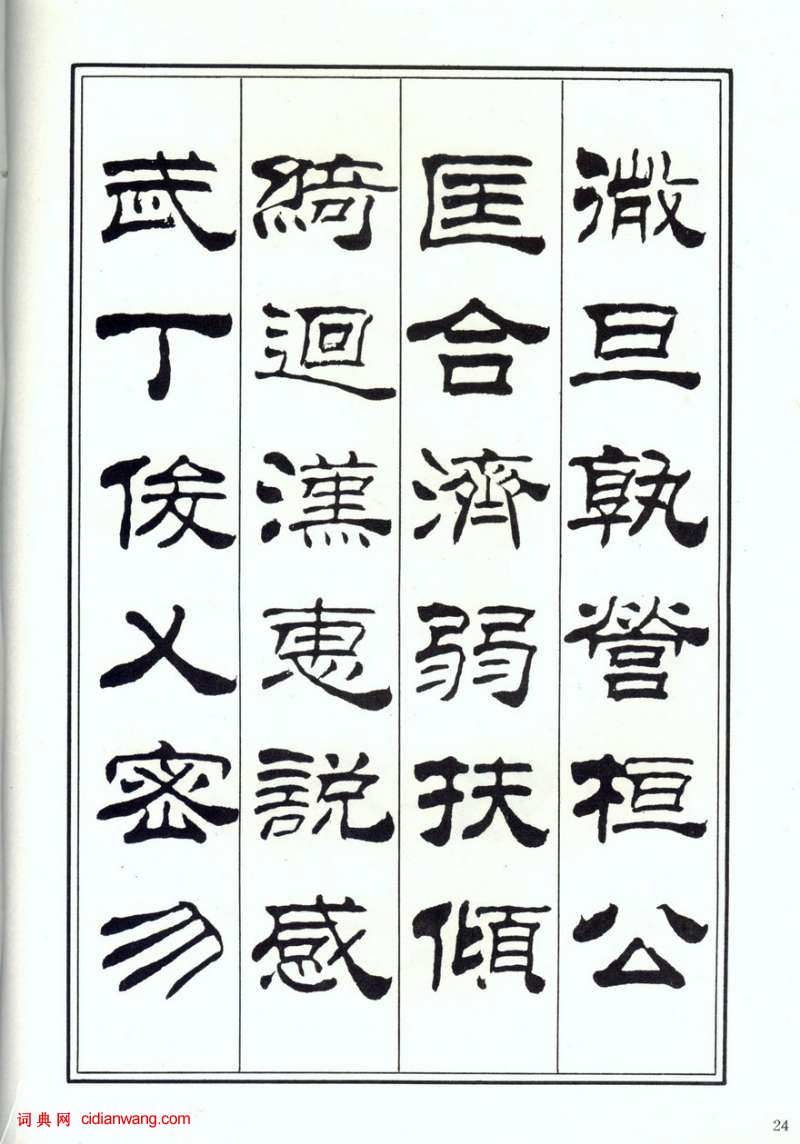 微旦孰營桓公
匡合濟弱扶傾
綺迴漢惠說感
武丁俊乂密勿
词典网 cidianwang.com
24